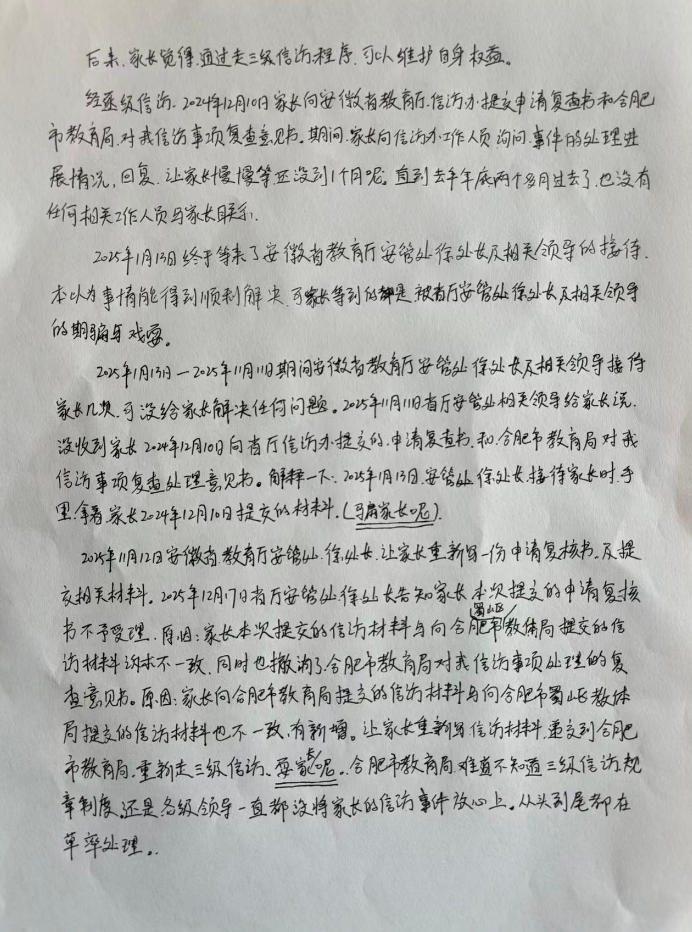 后来,家长觉得,通过走三级信访程序,可以维护自身权益。
经逐级信访,2024年12月10日家长向安徽省教育厅,信访办提交申请复查书和合肥
市教育局,对我信访事项复查意见书。期间,家长向信访办工作人员询问,事件的处理进
展情况,回复,让家长慢慢等,还没到1个月呢。直到去年年底两个多月过去了,也没有
任何相关工作人员与家长联系,
2025年1月13日终于等来了安徽省教育厅安管处徐处长及相关领导的接待,
本以为事情能得到顺利解决,可家长等到的是被省厅安管处徐处长及相关领导
的期骗与戏耍。
2025年1月13日—2025年11月11日期间安徽省教育厅安管处徐处长及相关领导接待
家长几次,可没给家长解决任何问题。2025年11月11日省厅安管处相关领导给家长说,
没收到家长2024年12月10日向省厅信访办提交的,申请复查书,和,合肥市教育局对我
信访事项复查处理意见书。解释一下:2025年1月13日,安管处,徐处长,接待家长时,手
里拿着家长2024年12月10日提交的材料。(骗家长呢)
2025年11月12日安徽省,教育厅安管处,徐处长,让家长重新写一份申请复核书,及提
交相关材料。2025年12月17日省厅安管处徐处长告知家长,本次提交的申请复核
书不予受理,原因:家长本次提交的信访材料与向合肥市蜀山区教体局提交的信
访材料不一致,同时也撤消了合肥市教育局对我信访事项处理的复
查意见书。原因:家长向合肥市教育局提交的信访材料与向合肥市蜀山区教体
局提交的信访材料也不一致,有新增。让家长重新写信访材料,递交到合肥
市教育局,重新走三级信访、耍家长呢。合肥市教育局,难道不知道三级信访规
章制度,还是各级领导一直都没将家长的信访事件放心上。从头到尾都在
草率处理。